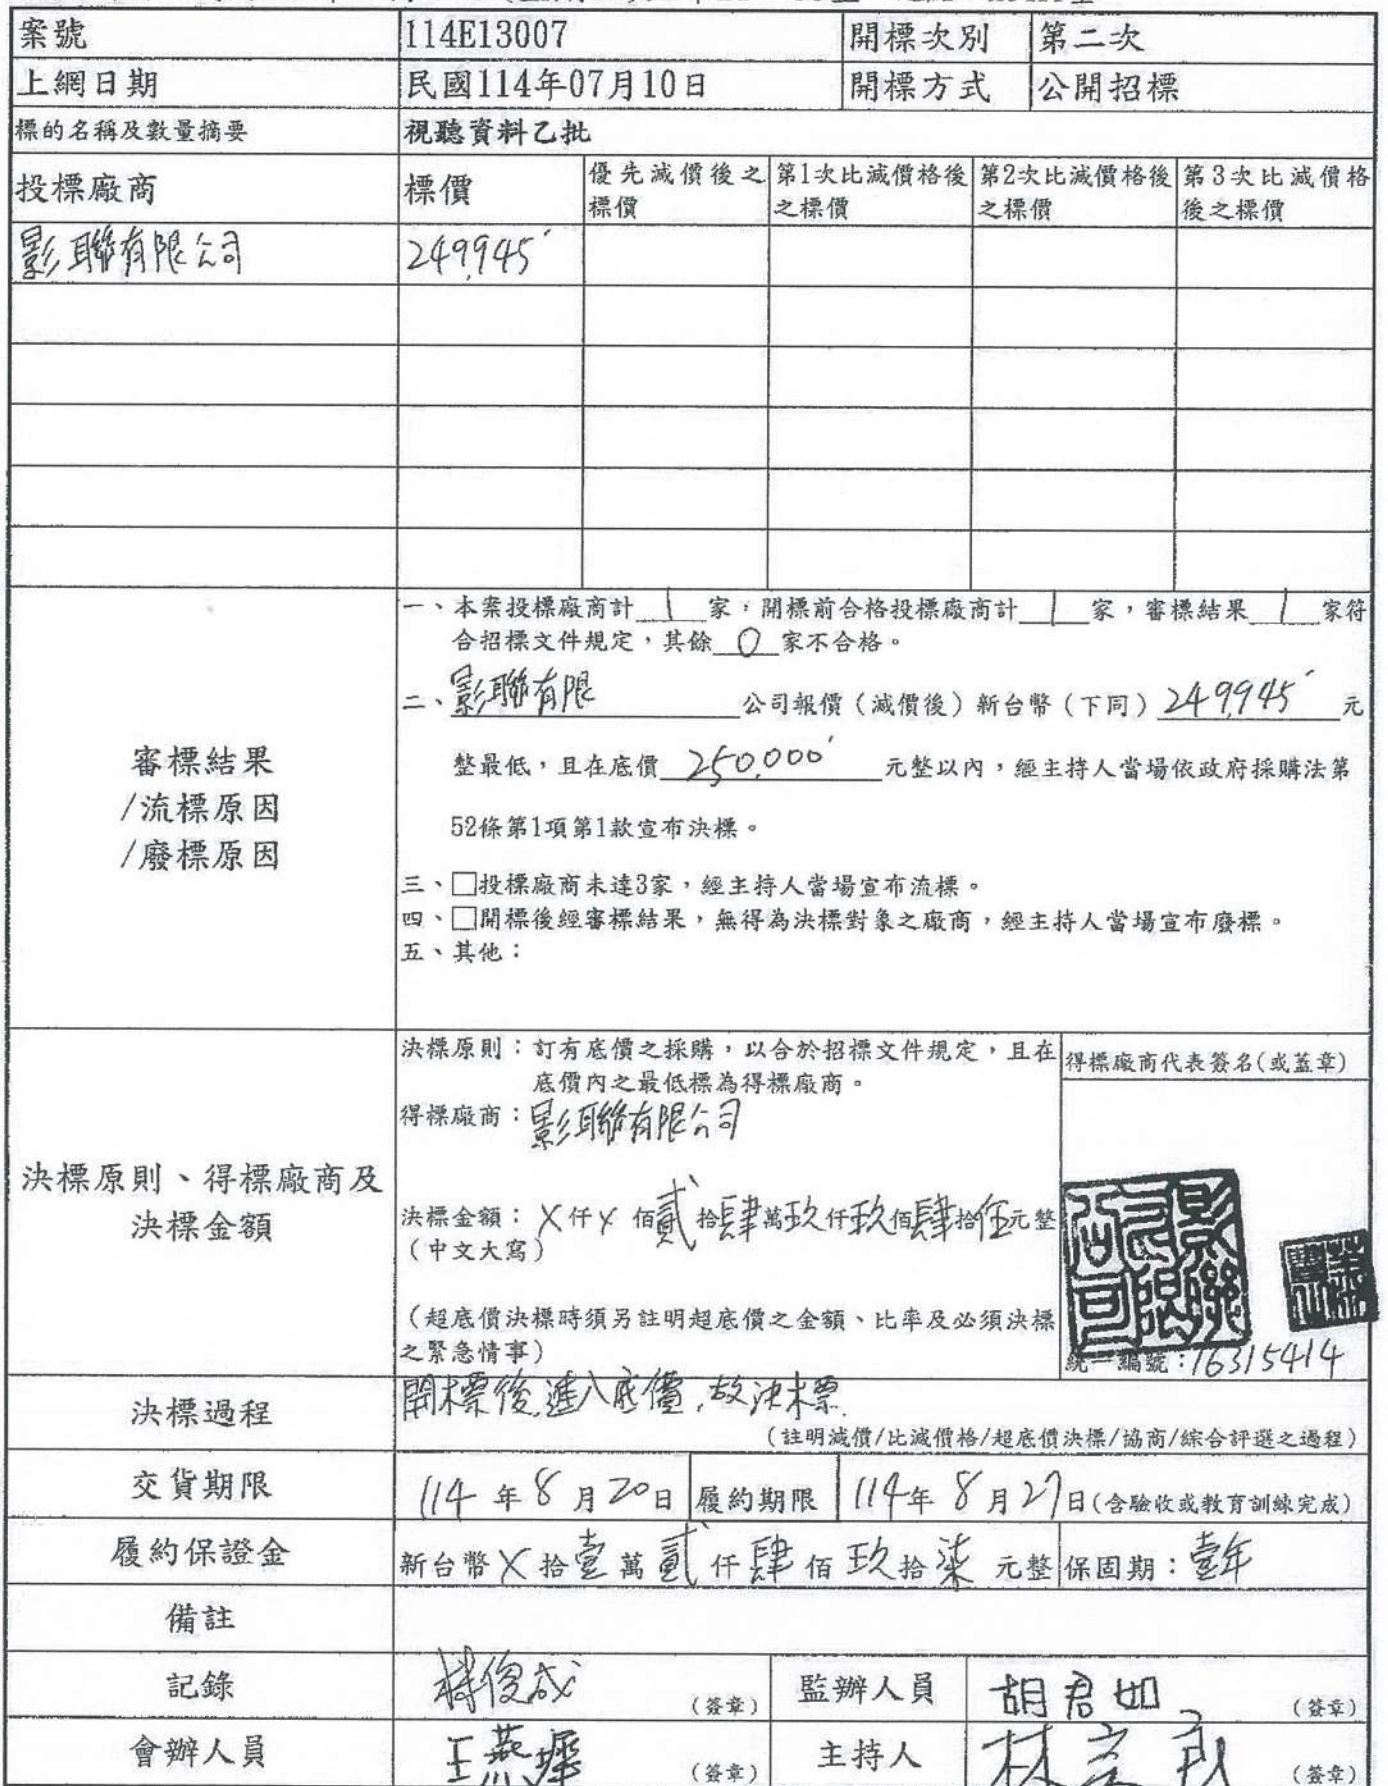 案號 114E13007 開標次別 第二次
上網日期 民國114年07月10日 開標方式 公開招標
標的名稱及數量摘要 視聽資料乙批
投標廠商 標價 優先減價後之標價 第1次比減價格後之標價 第2次比減價格後之標價 第3次比減價格後之標價
影聯有限公司 249,945
審標結果
/流標原因
/廢標原因
一、本案投標廠商計 1 家,開標前合格投標廠商計 1 家,審標結果 1 家符
合招標文件規定,其餘 0 家不合格。
二、影聯有限 公司報價(減價後)新台幣(下同) 249,945 元
整最低,且在底價 250,000 元整以內,經主持人當場依政府採購法第
52條第1項第1款宣布決標。
三、□投標廠商未達3家,經主持人當場宣布流標。
四、□開標後經審標結果,無得為決標對象之廠商,經主持人當場宣布廢標。
五、其他:
決標原則、得標廠商及
決標金額
決標原則:訂有底價之採購,以合於招標文件規定,且在
底價內之最低標為得標廠商。
得標廠商:影聯有限公司
決標金額:X仟X佰貳拾肆萬玖仟玖佰肆拾伍元整
(中文大寫)
(超底價決標時須另註明超底價之金額、比率及必須決標
之緊急情事)
得標廠商代表簽名(或蓋章)
影聯有限公司
統一編號:16315414
決標過程 開標後,進入底價,故決標
(註明減價/比減價格/超底價決標/協商/綜合評選之過程)
交貨期限 114年8月20日 履約期限 114年8月27日(含驗收或教育訓練完成)
履約保證金 新台幣X拾壹萬貳仟肆佰玖拾柒元整 保固期:壹年
備註
記錄 楊俊成 (簽章) 監辦人員 胡君如 (簽章)
會辦人員 王燕 (簽章) 主持人 林 (簽章)